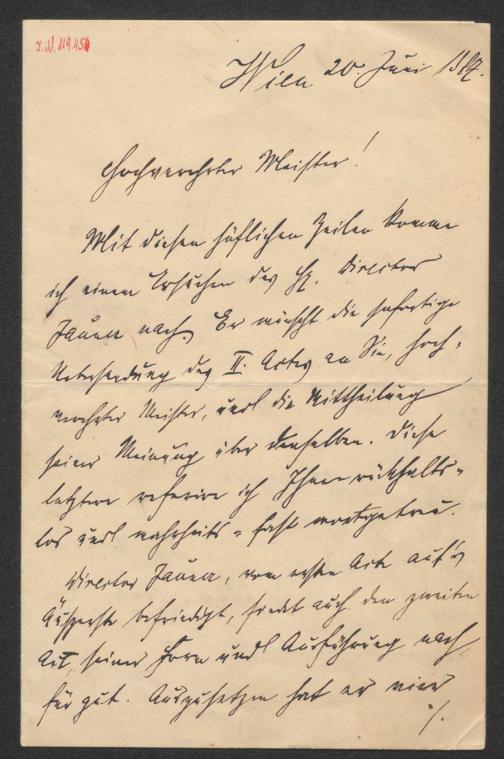 I.N. 119.454
Wien 20. Juni 1887.
Hochverehrter Meister!
Mit diesen höflichen Zeilen komme
ich einem Ersuchen des H. Directors
Jauner nach. Er wünscht die sofortige
Uebersendung des II. Actes an Sie, hoch-
verehrter Meister, und die Mittheilung
seiner Meinung über denselben. Diese
letztere referire ich Ihnen rückhalts-
los und wahrheits- fast wortgetreu.
Director Jauner, vom ersten Acte auf's
Äußerste befriedigt, findet auch den zweiten
Act, seiner Form und Ausführung nach,
für gut. Auszusetzen hat er nur
./.